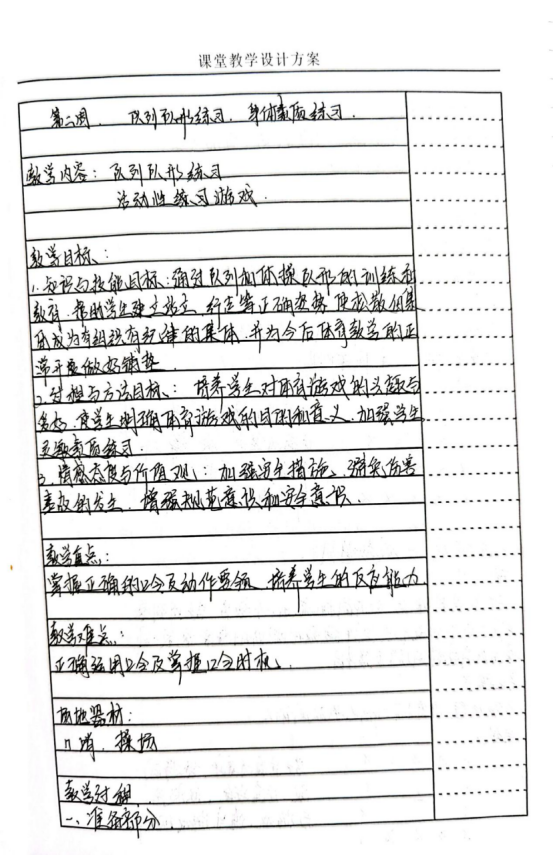 课堂教学设计方案
第二周 队列队形练习、身体素质练习.
教学内容: 队列队形练习
活动性练习游戏
教学目标:
1.知识与技能目标:通过队列和体操队形的训练和
教育,帮助学生建立站立、行走等正确姿势,使松散的集
体成为有组织有纪律的集体,并为今后体育教学的正
常开展做好铺垫
2.过程与方法目标: 培养学生对体育游戏的兴趣与
爱好,使学生明确体育游戏的目的和意义,加强学生
灵敏素质练习.
3.情感态度与价值观: 加强安全措施、避免伤害
事故的发生,增强规范意识和安全意识.
教学重点:
掌握正确的口令及动作要领、培养学生的反应能力.
教学难点:
正确运用口令及掌握口令时机.
场地器材:
口哨、操场
教学过程
一、准备部分